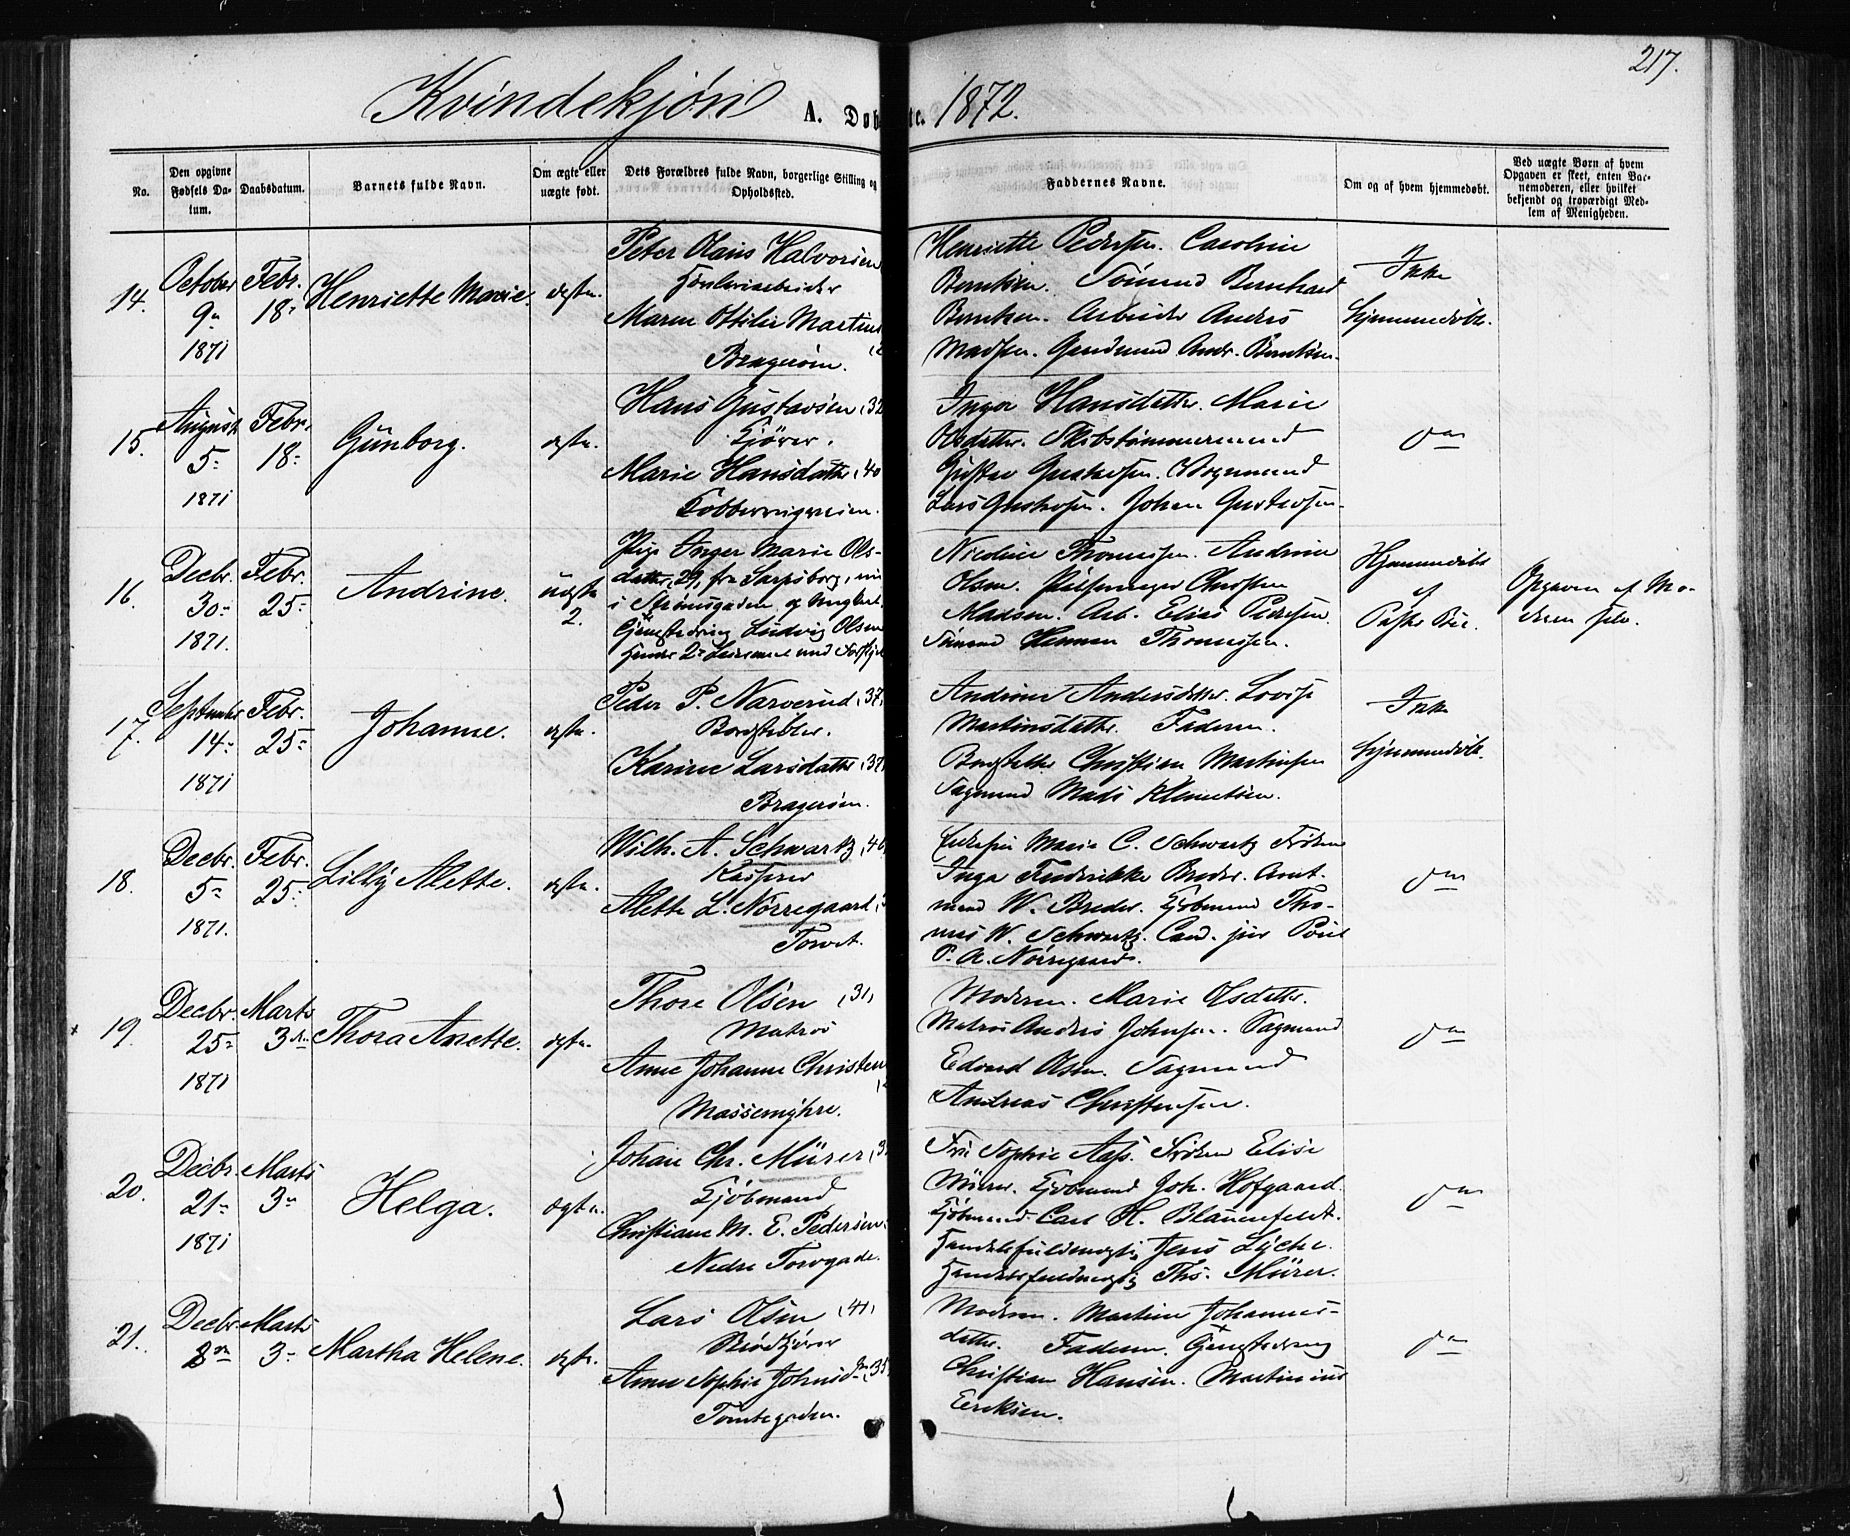 217.
Kvindekjøn A. Døbte. 1872.
No.
Den opgivne Fødsels Datum.
Daabsdatum.
Barnets fulde Navn.
Om ægte eller uægte født.
Dets Forældres fulde Navn, borgerlige Stilling og Opholdssted.
Faddernes Navne.
Om og af hvem hjemmedøbt.
Ved uægte Børn af hvem Opgaven er skeet, enten Barnemoderen, eller hvilket bekjendt og troværdigt Medlem af Menigheden.
14.
October
9de
1871
Febr.
18-
Henriette Marie.
ægte.
Peter Olaus Halvorsen
Maren Otilie Martins
Bragerøen.
Henriette Pedersen. Caroline
Berntsen. Sømand Bernhard
Berntsen. Arbeider Anders
Madsen. Gaardmand Andr. Berntsen.
Ikke
hjemmedøbt.
15.
August
5-
1871
Febr.
18-
Gunborg.
ægte.
Hans Gustavsen, 32
Kjører.
Marie Hansdatter, 40
Inger Hansdatter. Marie
Olsdatter. Skibstømmermand
Gustav Gustavsen. Vognmand
Lars Gustavsen. Johan Gustavsen.
do
16.
Decbr.
30-
1871.
Febr.
25-
Andrine.
uægte
2.
Pige Inger Marie Ols-
datter, 29, fra Sarpsborg, nu
i Strømsgaden, og Ungkarl,
Gjæstedreng Ludvig Olsen
Nicoline Thomassen. Andrine
Olsen. Christen
Madsen. Arb. Elias Pedersen.
Sømand Herman Thomassen.
Hjemmedøbt
af
Opgaven af Mo-
deren selv.
17.
September
14-
1871
Febr.
25-
Johanne.
ægte.
Peder P. Narverud, 37,
Bordstabler.
Karine Larsdatter, 37,
Bragerøen.
Andrine Andersdatter. Lovise
Martinsdatter. Faderen.
Bordstabler Christian Martinsen
Sagmand Mads Klemetsen.
Ikke
hjemmedøbt.
18.
Decbr.
5-
1871.
Febr.
25-
Lilly Alette.
ægte.
Wilh. A. Schwartz, 40
Kasserer
Alette L. Nørregaard,
Torvet.
Marie C. Schwartz. Frøken
Inga Frederikke Breder. Amt-
mand W. Breder. Kjøbmand Tho-
mas W. Schwartz. Cand. jur Povel
P. A. Nørregaard.
do
19.
Decbr.
25-
1871
Marts
3die
Thora Anette.
ægte.
Thore Olsen, 31,
Matros
Anne Johanne Christen
Massemyhre.
Moderen. Marie Olsdatter.
Matros Anders Johnsen. Sagmand
Edvard Olsen. Sagmand
Andreas Christensen.
do
20.
Decbr.
21-
1871
Marts
3-
Helga.
ægte.
Johan Chr. Mürer, 3
Kjøbmand
Christiane M. E. Pedersen.
Nedre Torvgade.
Fru Sophie Aass. Frøken Elise
Mürer. Kjøbmand Joh. Hofgaard.
Kjøbmand Carl H. Blauenfeldt.
Handelsfuldmægtig Jens Lyche.
Handelsfuldmægtig Ths. Mürer.
do
21.
Decbr.
8de
Marts
3-
Martha Helene.
ægte.
Lars Olsen, 41,
Anne Sophie Johnsdr., 35
Tomtegaden.
Moderen. Martine Johannes-
datter. Faderen. Gjæstedreng
Christian Hansen. Martinius
Eriksen.
do